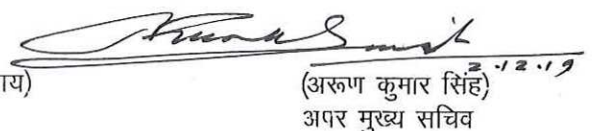 2.12.19
ाय) (अरूण कुमार सिंह)
अपर मुख्य सचिव